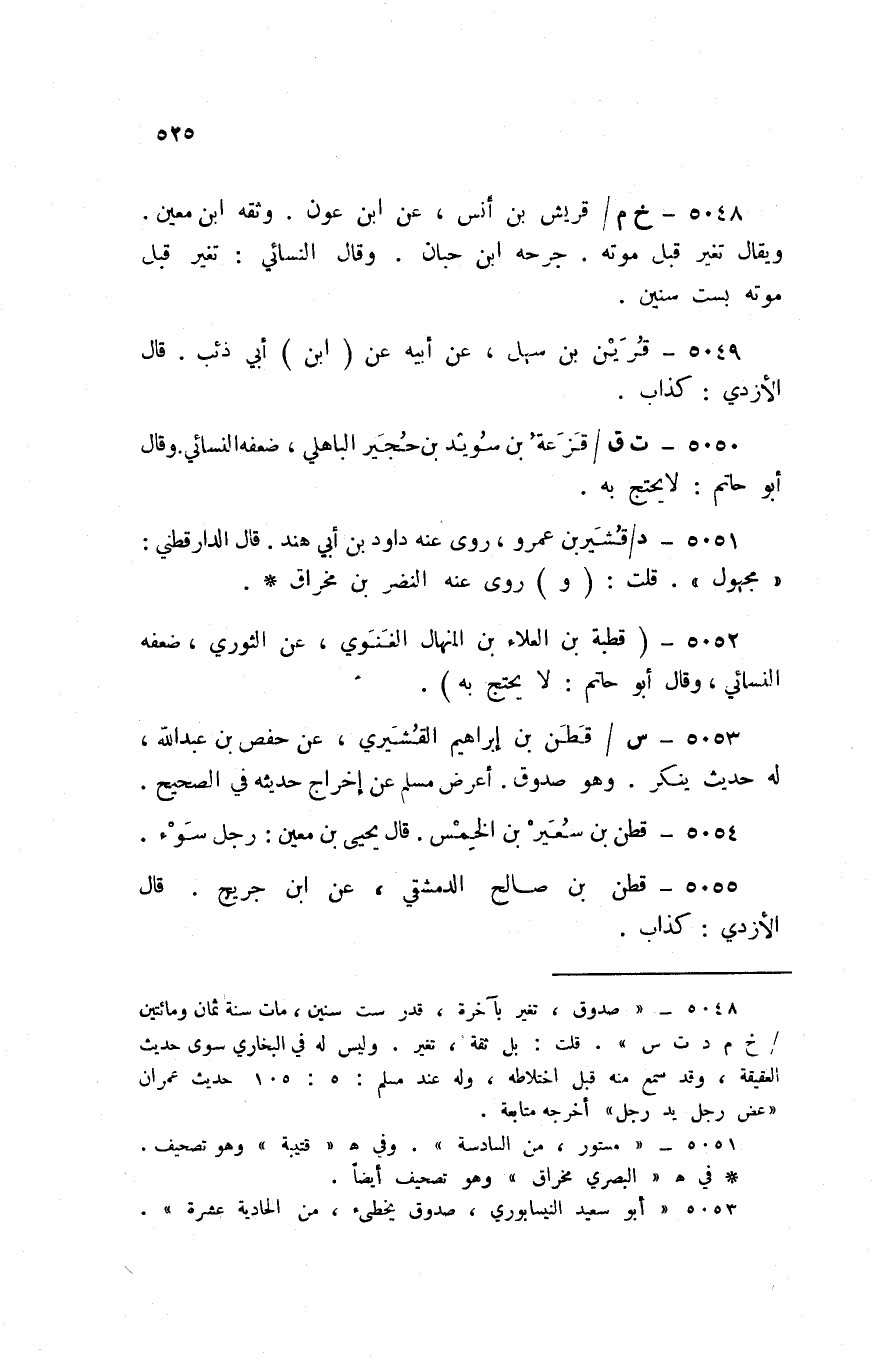 ٥٢٥
٥٠٤٨ – خ م / قريش بن أنس ، عن ابن عون . وثقه ابن معين .
ويقال تغير قبل موته . جرحه ابن حبان . وقال النسائي : تغير قبل
موته بست سنين .
٥٠٤٩ – قُرَيْن بن سهل ، عن أبيه عن ( ابن ) أبي ذئب . قال
الأزدي : كذاب .
٥٠٥٠ – ت ق / قَزَعةُ بن سُويْد بن حُجَير الباهلي ، ضعفه النسائي . وقال
أبو حاتم : لا يحتج به .
٥٠٥١ – د / قُشَير بن عمرو ، روى عنه داود بن أبي هند . قال الدارقطني :
« مجهول » . قلت : ( و ) روى عنه النضر بن مخراق * .
٥٠٥٢ – ( قطبة بن العلاء بن المنهال الغَنَوي ، عن الثوري ، ضعفه
النسائي ، وقال أبو حاتم : لا يحتج به ) .
٥٠٥٣ – س / قَطَن بن إبراهيم القُشَيري ، عن حفص بن عبدالله ،
له حديث ينكر . وهو صدوق . أعرض مسلم عن إخراج حديثه في الصحيح .
٥٠٥٤ – قطن بن سُعَيرْ بن الخِمْس . قال يحيى بن معين : رجل سَوْء .
٥٠٥٥ – قطن بن صالح الدمشقي ، عن ابن جريج . قال
الأزدي : كذاب .
٥٠٤٨ – « صدوق ، تغير بآخرة ، قدر ست سنين ، مات سنة ثمان ومائتين
/ خ م د ت س » . قلت : بل ثقة ، تغير . وليس له في البخاري سوى حديث
العقيقة ، وقد سمع منه قبل اختلاطه ، وله عند مسلم : ٥ : ١٠٥ حديث عمران
«عض رجل يد رجل» أخرجه متابعة .
٥٠٥١ – « مستور ، من السادسة » . وفي ه « قتيبة » وهو تصحيف .
* في ه « البصري مخراق » وهو تصحيف أيضاً .
٥٠٥٣ « أبو سعيد النيسابوري ، صدوق يخطىء ، من الحادية عشرة » .